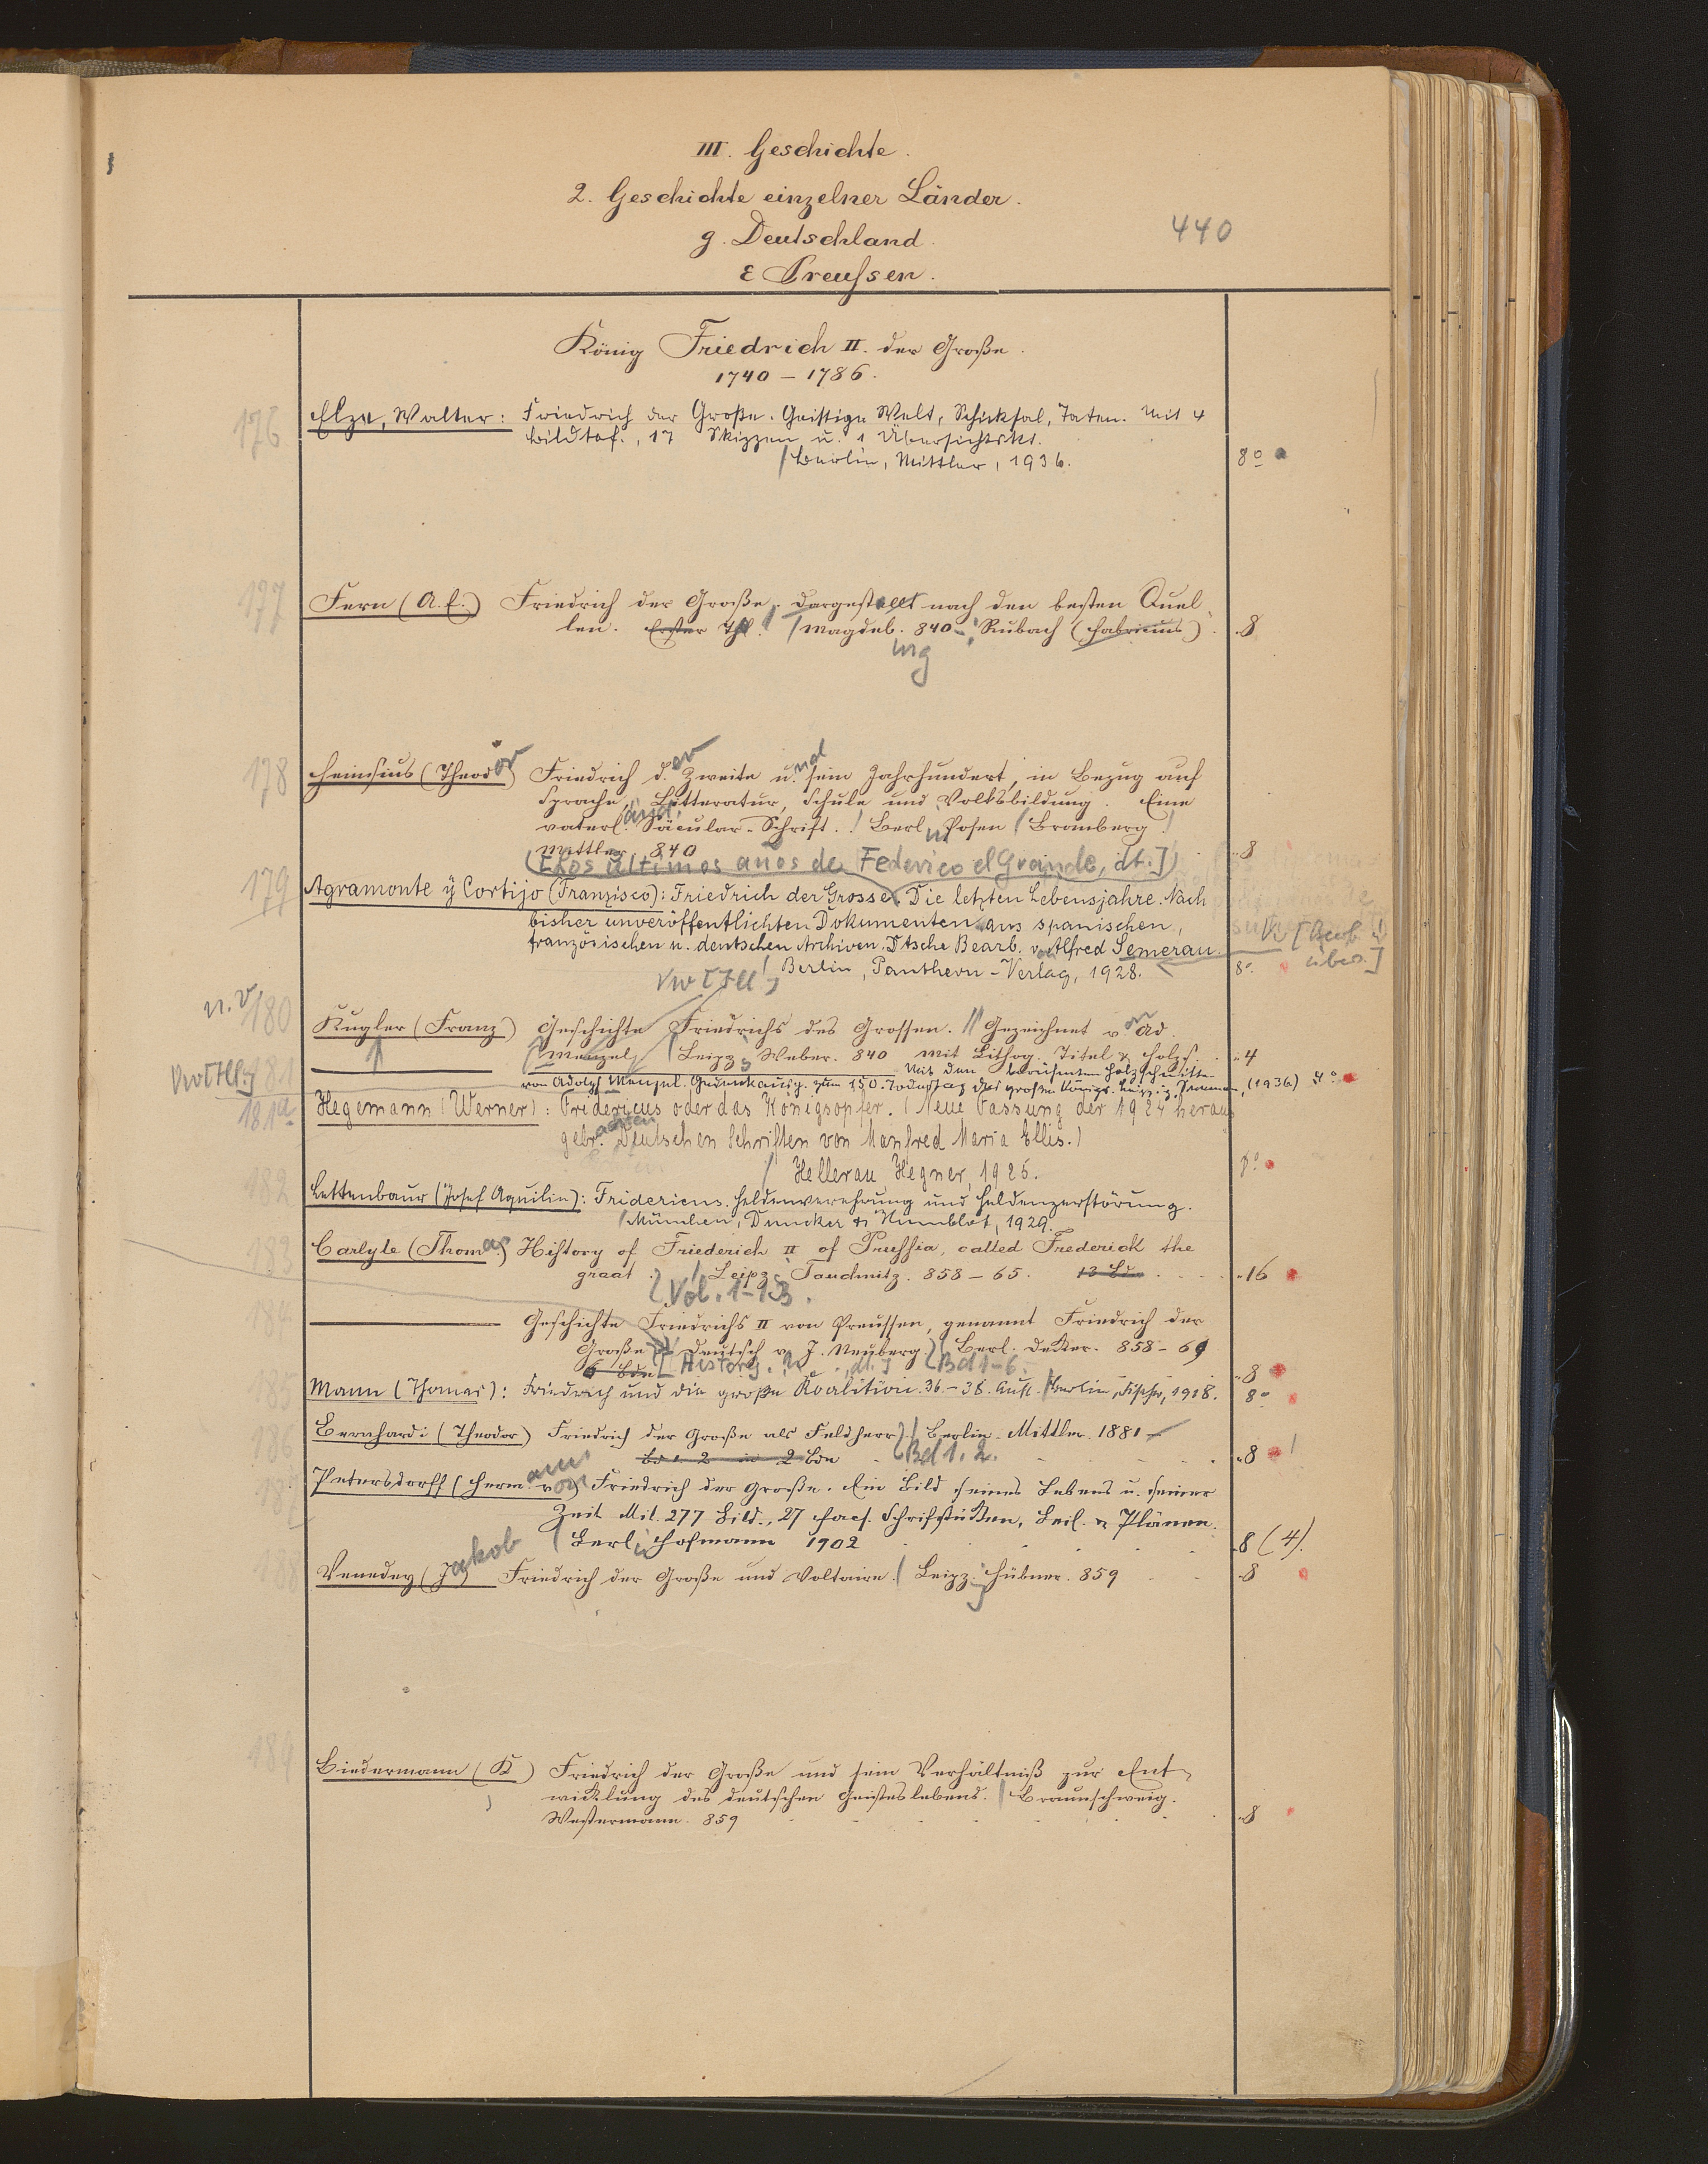 III. Geschichte.
2. Geschichte einzelner Länder.
440
g. Deutschland.
ε Preußen.
König Friedrich II. der Große.
1740 – 1786.
176 Elze, Walter: Friedrich der Große. Geistige Welt, Schicksal, Taten. Mit 4
Bildtaf., 17 Skizzen u. 1 Übersichtskt.
/ Berlin, Mittler, 1936. 8°
177 Fern (A. E.) Friedrich der Große, dargestellt nach den besten Quel-
len. Erster Th. / Magdeb. 840 Rubach (Fabricius). 8
urg
178 Heinsius (Theodor) Friedrich d.er Zweite u.nd sein Jahrhundert, in Bezug auf
Sprache, Litteratur, Schule und Volksbildung. Eine
vaterl.änd. Säcular-Schrift. / Berl. u. Posen / Bromberg /
Mittler 840 8
([Los últimos años de Federico el Grande, dt.])
179 Agramonte ÿ Cortijo (Franzisco): Friedrich der Grosse. Die letzten Lebensjahre. Nach
bisher unveröffentlichten Dokumenten aus spanischen,
französischen u. deutschen Archiven. Dtsche Bearb. von Alfred Semerau.
Vw [Bearb. u.
über.]
/ Berlin, Pantheon-Verlag, 1928. 8°
Vw [Ill.]
n. v. 180 Kugler (Franz) Geschichte Friedrichs des Grossen. // Gezeichnet von Ad.
Menzel / Leipz. Weber. 840 mit Lithog. Titel & Holzs. 4
Vw [Ill.] 181 Mit den berühmten Holzschnitten
von Adolph Menzel. Gedenkausg. zum 150. Todestag des großen Königs. (1936) 4°
181a Hegemann (Werner): Fridericus oder das Königsopfer. (Neue Fassung der 1924 heraus
gebr.achten Deutschen Schriften von Manfred Maria Ellis.)
/ Hellerau Hegner, 1925. 8°
182 Lettenbaur (Josef Aquilin): Fridericus. Heldenverehrung und Heldenzerstörung.
/ München, Duncker & Humblot, 1929.
183 Carlyle (Thomas) History of Friederich II of Prussia, called Frederick the
great. / Leipz. Tauchnitz. 858–65. 13 Bde 16
Vol. 1–13.
184 Geschichte Friedrichs II von Preussen, genannt Friedrich der
Große / deutsch v. J. Neuberg. / Berl. Decker. 858–69
6 Bde [History, dt.] Bd 1–6. 8
185 Mann (Thomas): Friedrich und die große Koalition. 36.–38. Aufl. / Berlin, Fischer, 1918. 8°
186 Bernhardi (Theodor) Friedrich der Große als Feldherr / Berlin. Mittler. 1881
Bd 1. 2 in 2 Bde Bd 1. 2. 8
187 Petersdorff (Hermann von) Friedrich der Große. Ein Bild seines Lebens u. seiner
Zeit Mit. 277 Bild., 27 Facs. Schriftstücken, Beil. & Plänen.
/ Berl. Hofmann 1902 8 (4).
188 Venedey (Jakob) Friedrich der Große und Voltaire. / Leipz. Hübner. 859 8
189 Biedermann (K) Friedrich der Große und sein Verhältniß zur Ent-
wicklung des deutschen Geisteslebens. / Braunschweig.
Westermann. 859 8